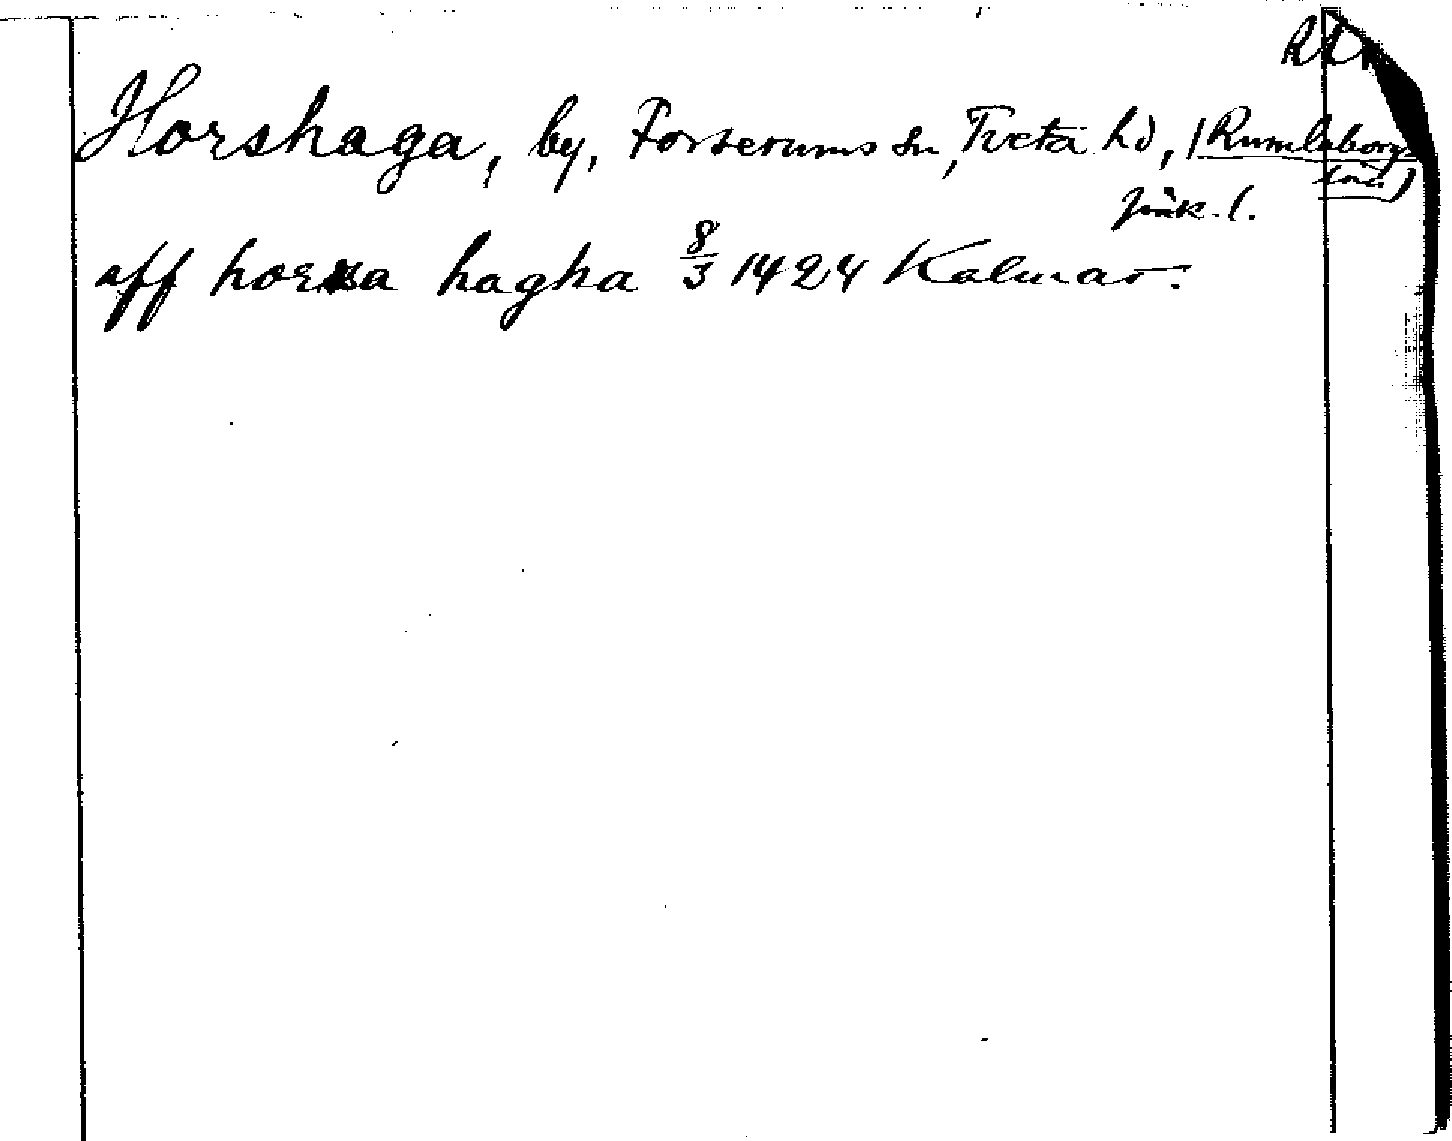 Horshaga, by, Forserums sn, Tveta hd, (Rumlaborgs
län)
Jönk. l.
aff horsa hagha 8/3 1424 Kalmar.